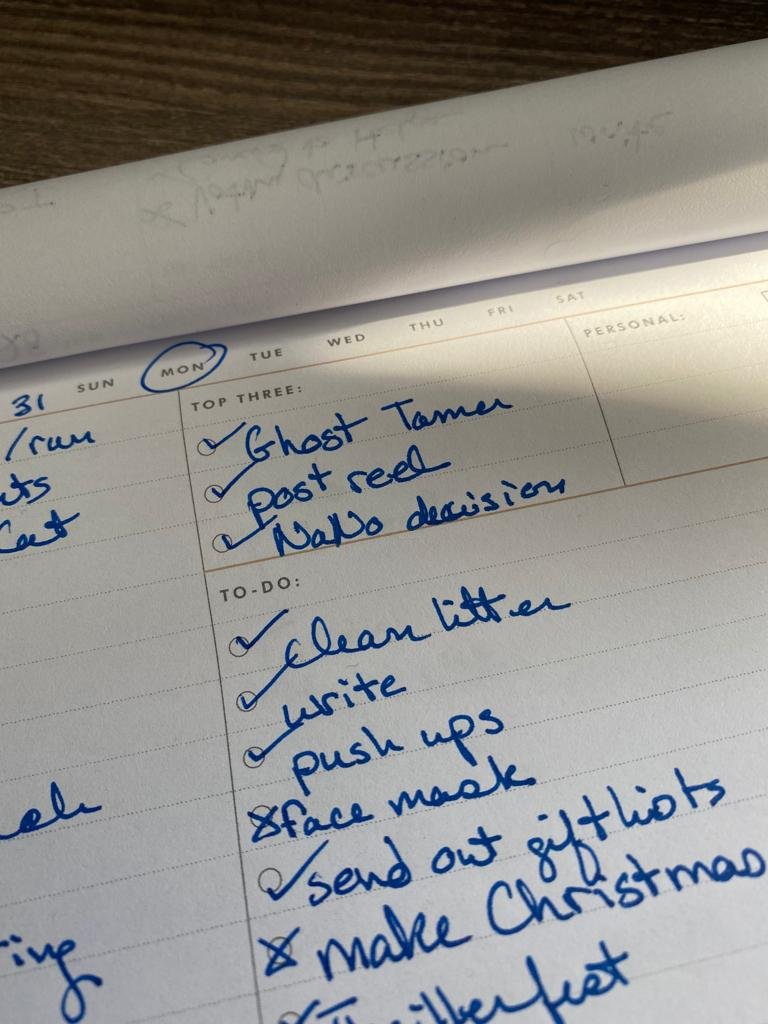 write
discussion
SUN MON TUE WED THU FRI SAT
31
/run
TOP THREE:
PERSONAL:
Ghost Tamer
post reel
NaNo decision
Cat
TO-DO:
clean litter
write
push ups
face mask
send out gift lists
make Christmas
ring
Thrillerfest